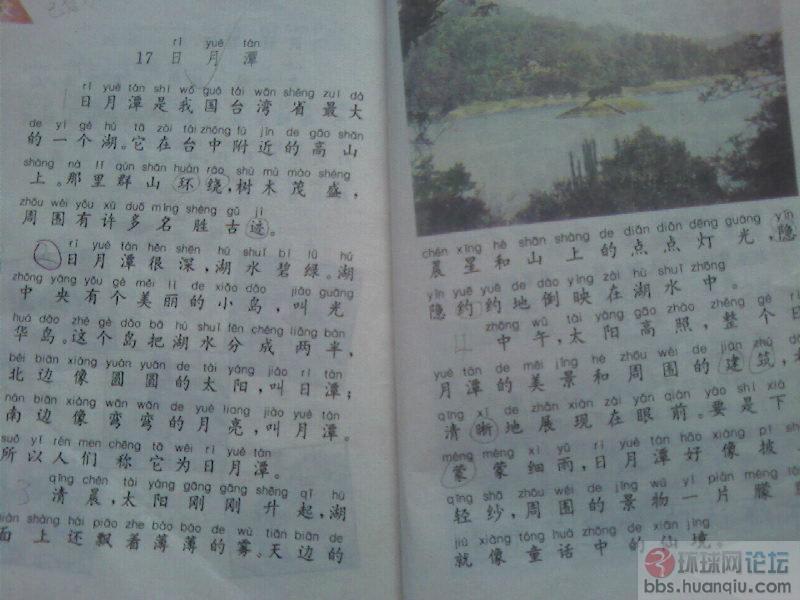 17 日月潭
rì yuè tán
rì yuè tán shì wǒ guó tái wān shěng zuì dà
日月潭是我国台湾省最大
de yí gè hú tā zài tái zhōng fù jìn de gāo shān
的一个湖。它在台中附近的高山
shàng nà lǐ qún shān huán rào shù mù mào shèng
上。那里群山环绕,树木茂盛,
zhōu wéi yǒu xǔ duō míng shèng gǔ jì
周围有许多名胜古迹。
rì yuè tán hěn shēn hú shuǐ bì lǜ hú
日月潭很深,湖水碧绿。湖
zhōng yāng yǒu gè měi lì de xiǎo dǎo jiào guāng
中央有个美丽的小岛,叫光
huá dǎo zhè gè dǎo bǎ hú shuǐ fēn chéng liǎng bàn
华岛。这个岛把湖水分成两半,
běi biān xiàng yuán yuán de tài yáng jiào rì tán
北边像圆圆的太阳,叫日潭;
nán biān xiàng wān wān de yuè liang jiào yuè tán
南边像弯弯的月亮,叫月潭。
suǒ yǐ rén men chēng tā wéi rì yuè tán
所以人们称它为日月潭。
3
qīng chén tài yáng gāng gāng shēng qǐ hú
清晨,太阳刚刚升起,湖
miàn shàng hái piāo zhe báo báo de wù tiān biān de
面上还飘着薄薄的雾。天边的
chén xīng hé shān shàng de diǎn diǎn dēng guāng yǐn
晨星和山上的点点灯光,隐
yǐn yuē yuē de dào yìng zài hú shuǐ zhōng
隐约约地倒映在湖水中。
zhōng wǔ tài yáng gāo zhào zhěng gè rì
中午,太阳高照,整个日
yuè tán de měi jǐng hé zhōu wéi de jiàn zhù
月潭的美景和周围的建筑,
qīng xī de zhǎn xiàn zài yǎn qián yào shì xià
清晰地展现在眼前。要是下
méng méng xì yǔ rì yuè tán hǎo xiàng pī
蒙蒙细雨,日月潭好像披
qīng shā zhōu wéi de jǐng wù yí piàn méng
轻纱,周围的景物一片朦
jiù xiàng tóng huà zhōng de xiān jìng
就像童话中的仙境。
环球网论坛
bbs.huanqiu.com